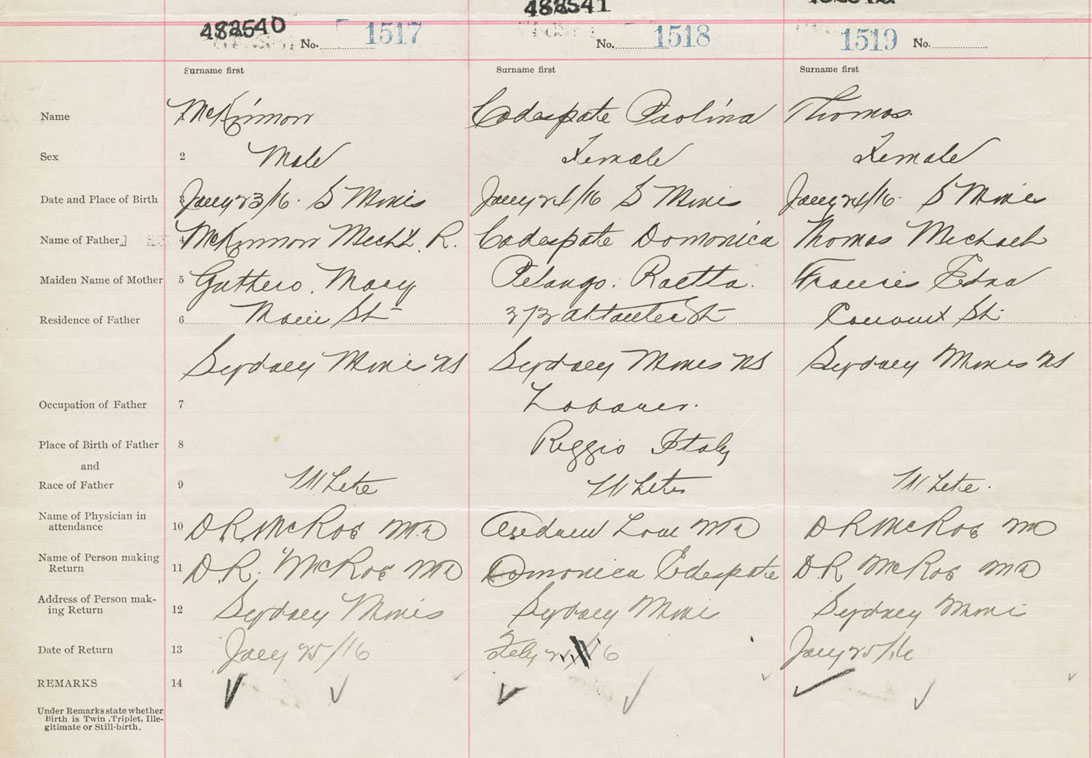 482540 482541
No. 1517 No. 1518 1519 No.
Surname first Surname first Surname first
Name McKinnon Codespote Paolina Thomas
Sex 2 Male Female Female
Date and Place of Birth 3 Jany 23/16 S Mines Jany 21/16 S Mines Jany 21/16 S Mines
Name of Father 4 McKinnon Mechl. R. Codespote Domonica Thomas Michael
Maiden Name of Mother 5 Guthero. Mary Raetta. Francis Edna
Residence of Father 6 Main St 373 St Convent St.
Sydney Mines NS Sydney Mines NS Sydney Mines NS
Occupation of Father 7 Labourer.
Place of Birth of Father 8 Reggio Italy
and
Race of Father 9 White White White.
Name of Physician in
attendance 10 D R McRae MD Andrew Love MD D R McRae MD
Name of Person making
Return 11 D. R. McRae MD Domonica Codespote D R McRae MD
Address of Person mak-
ing Return 12 Sydney Mines Sydney Mines Sydney Mines
Date of Return 13 Jany 25/16 Feby 16 Jany 25/16
REMARKS 14
Under Remarks state whether
Birth is Twin, Triplet, Ille-
gitimate or Still-birth.